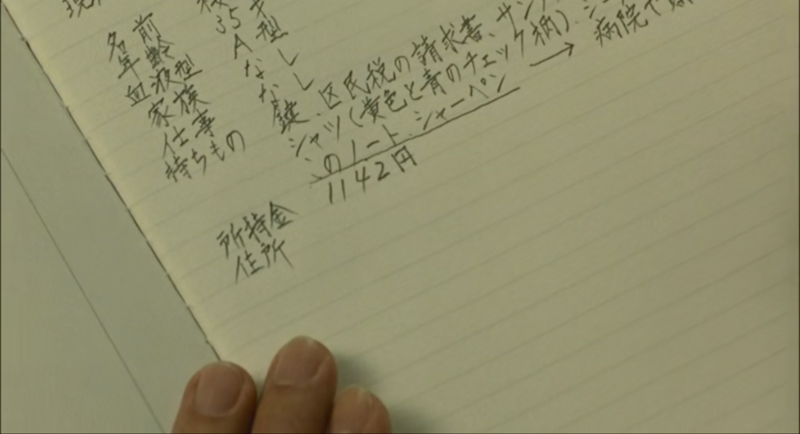 名前
年齢 35才
血液型 A型
家族 なし
仕事 なし
持ちもの 鍵、区民税の請求書、サン
シャツ(黄色と青のチェック柄)、
のノート、シャーペン → 病院で
所持金 1142円
住所